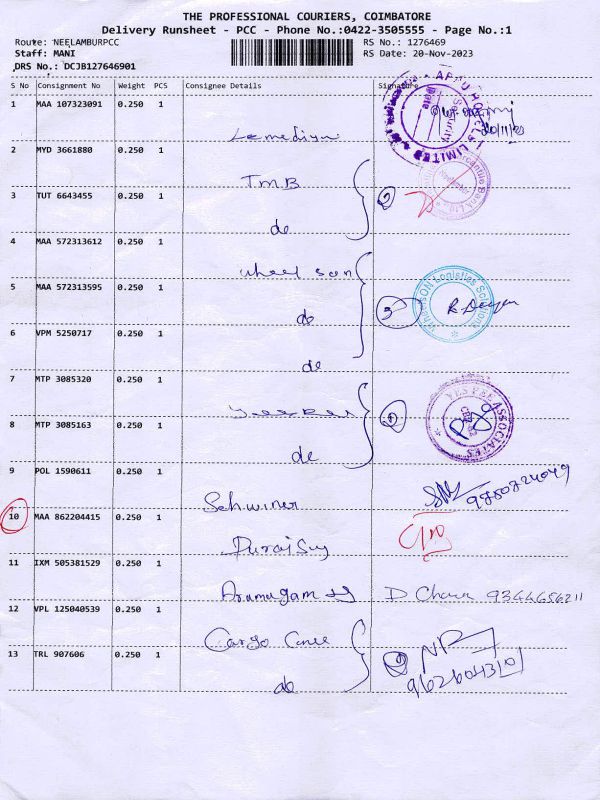 THE PROFESSIONAL COURIERS, COIMBATORE
Delivery Runsheet - PCC - Phone No.:0422-3505555 - Page No.:1
Route: NEELAMBURPCC RS No.: 1276469
Staff: MANI RS Date: 20-Nov-2023
DRS No.: DCJB127646901
S No Consignment No Weight PCS Consignee Details Signature
1 MAA 107323091 0.250 1
APPU HOTELS LIMITED Security Date
20/11/23
Lemediyn
2 MYD 3661880 0.250 1
TMB
3 TUT 6643455 0.250 1 2
do
4 MAA 572313612 0.250 1
wheel son
5 MAA 572313595 0.250 1 3 WheelsON Logistics Solutions
do
6 VPM 5250717 0.250 1
do
7 MTP 3085320 0.250 1
YES PEE ASSOCIATES
8 MTP 3085163 0.250 1 2
do
9 POL 1590611 0.250 1
Schwiner
10 MAA 862204415 0.250 1
Duraisuy
11 IXM 505381529 0.250 1
Arumugam D Chara 9344656211
12 VPL 125040539 0.250 1
Cargo Care
13 TRL 907606 0.250 1 2
do